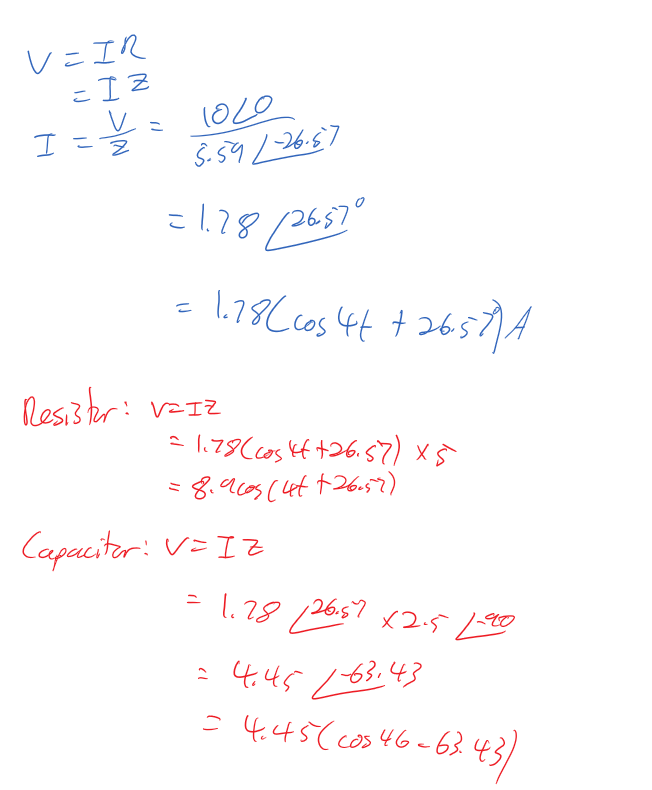 V = IR
= IZ
I = V/Z = 10∠0 / 5.59∠-26.57
= 1.78 ∠26.57°
= 1.78(cos 4t + 26.57°)A
Resistor: V=IZ
= 1.78(cos 4t+26.57) × 5
= 8.9cos(4t+26.57)
Capacitor: V = IZ
= 1.78 ∠26.57 × 2.5 ∠-90
= 4.45 ∠-63.43
= 4.45(cos 46 - 63.43)